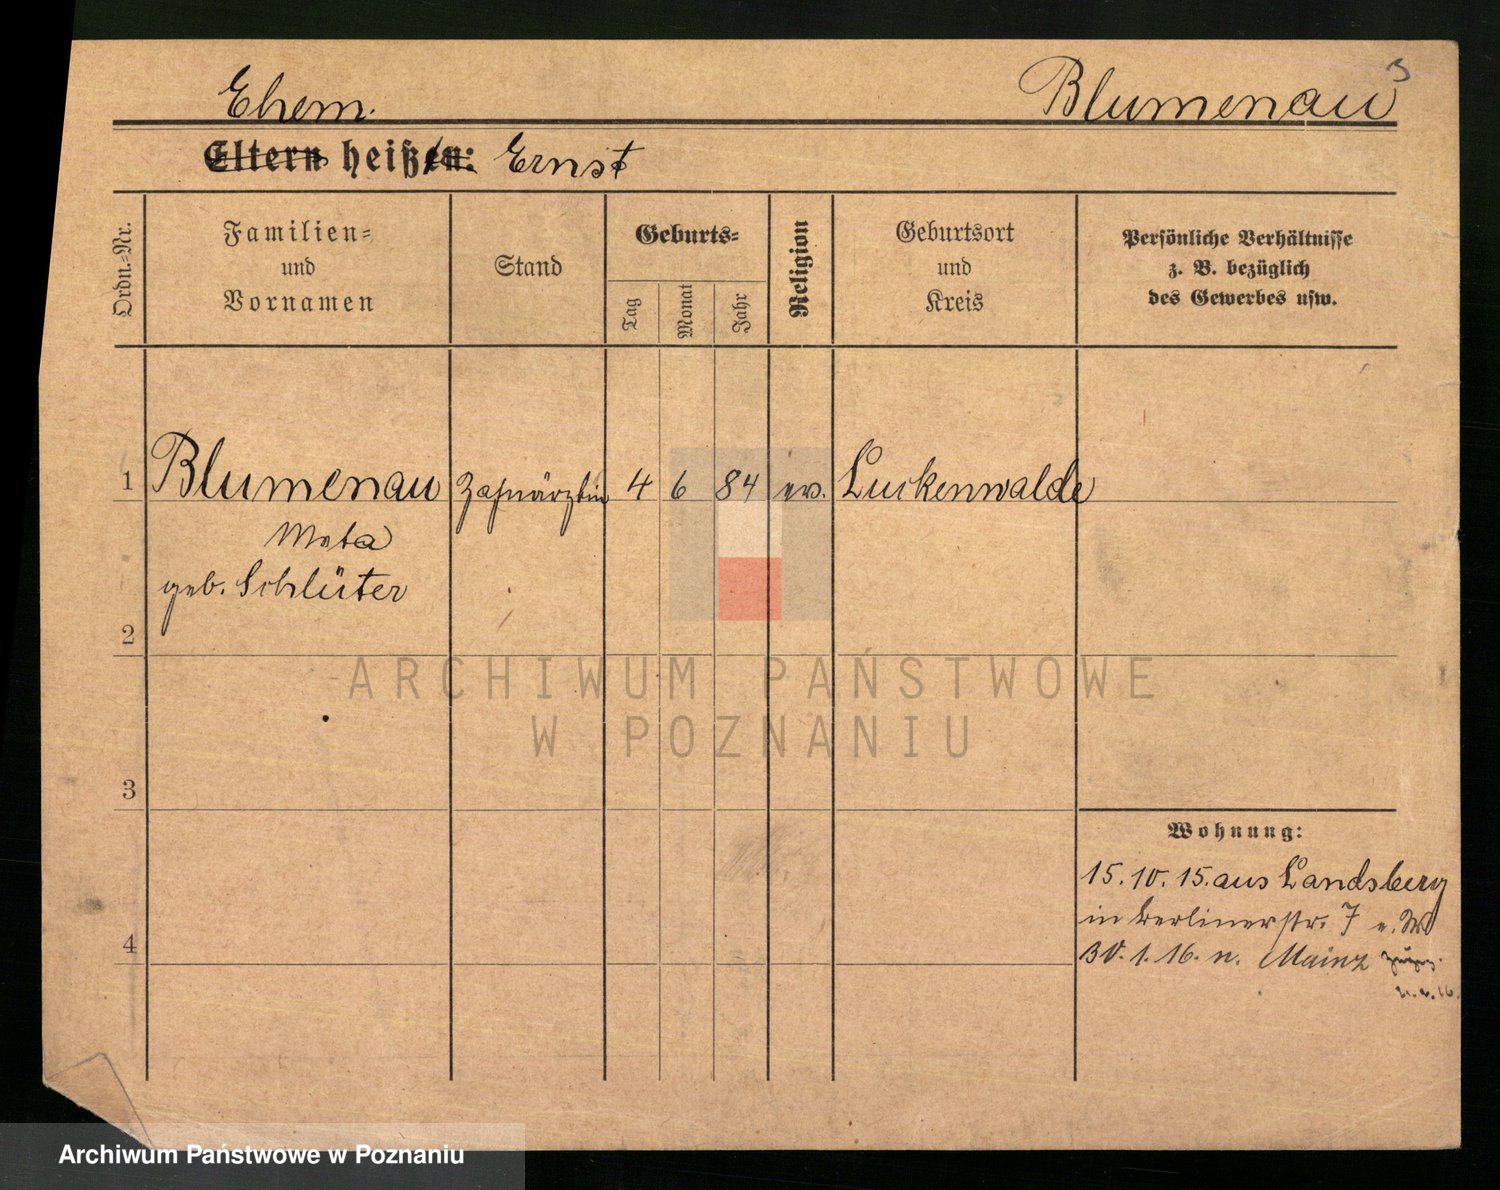 Ehem. Blumenau
Eltern heißen: Ernst
Ordn.-Nr.
Familien-
und
Vornamen
Stand
Geburts-
Tag
Monat
Jahr
Religion
Geburtsort
und
Kreis
Persönliche Verhältnisse
z. B. bezüglich
des Gewerbes usw.
1 Blumenau Zahnärztin 4 6 84 ev. Luckenwalde
Meta
geb. Schlüter
2
ARCHIWUM PAŃSTWOWE
W POZNANIU
3
Wohnung:
15.10.15. aus Landsberg
in Berlinerstr. 7
4
30.1.16. n. Mainz
Archiwum Państwowe w Poznaniu